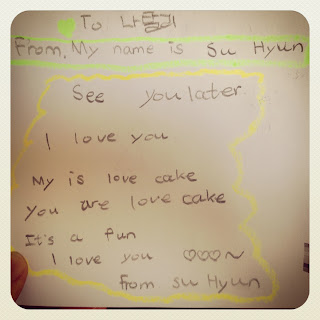 To
From, My name is Su Hyun
See you later.
I love you
My is love cake
You are love cake
It's a fun
I love you ♡♡♡~
from su Hyun